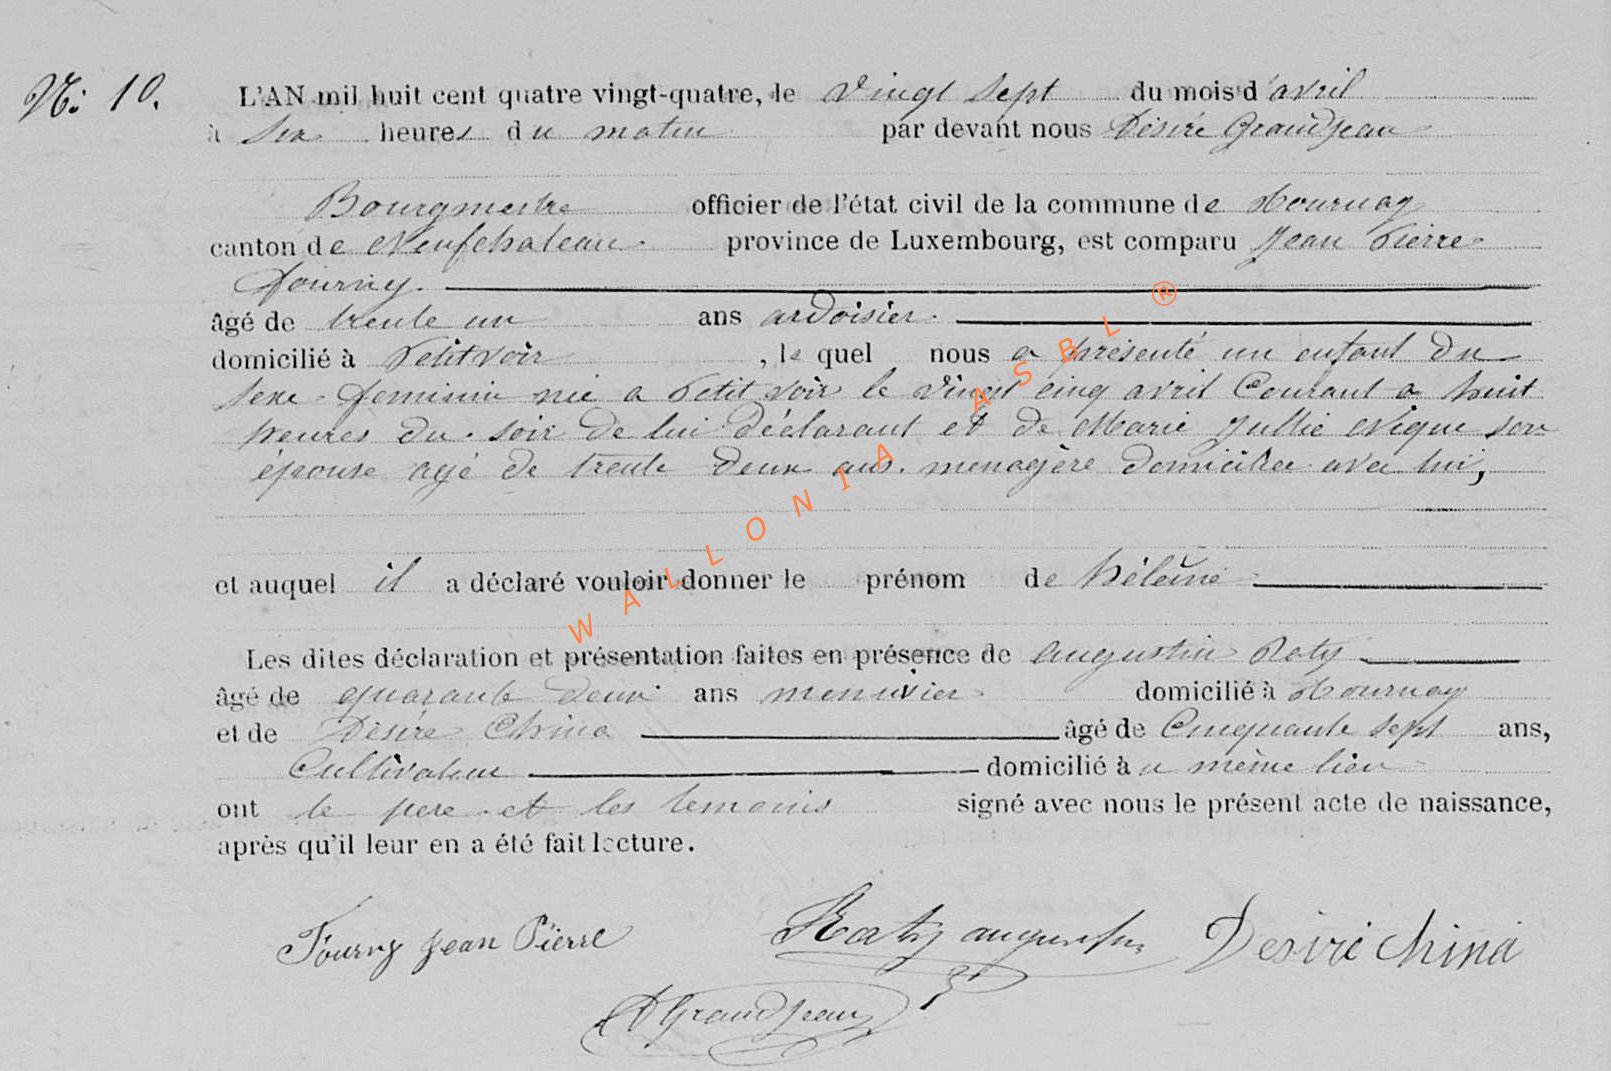 N: 10.
L'AN mil huit cent quatre vingt-quatre, le vingt sept du mois d'avril
à six heures du matin par devant nous Désiré Grandjean
Bourgmestre officier de l'état civil de la commune de Tournay
canton de Neufchateau province de Luxembourg, est comparu Jean Pierre
Fourny.
âgé de trente un ans ardoisier.
domicilié à Petitvoir, le quel nous a présenté un enfant du
sexe feminin née a Petit voir le vingt cinq avril Courant a huit
heures du soir de lui déclarant et de Marie Jullie Nique son
épouse agé de trente deux ans. menagère domiciliée avec lui,
et auquel il a déclaré vouloir donner le prénom de hélène
Les dites déclaration et présentation faites en présence de augustin Roty
âgé de quarante deux ans menuisier domicilié à Tournay
et de Désiré China âgé de Cinquante sept ans,
Cultivateur domicilié à u même lieu
ont le pere et les temoins signé avec nous le présent acte de naissance,
après qu'il leur en a été fait lecture.
Fourny Jean Pierre
Raty augustin
Desiré China
D Grandjean
WALLONIA ASBL ®